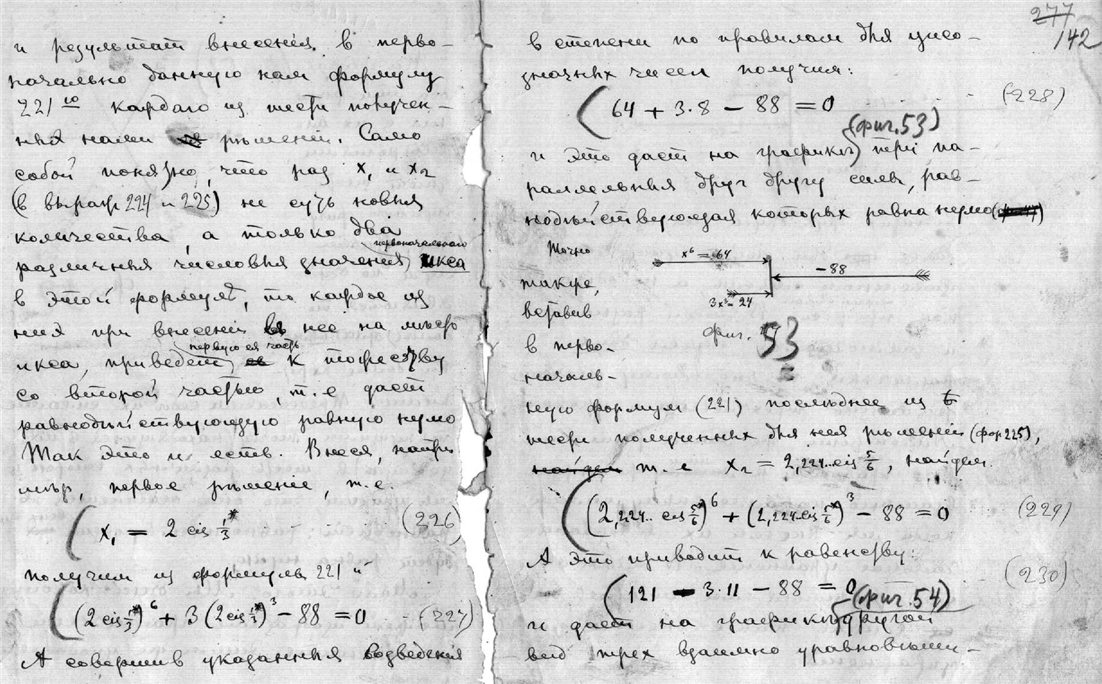 и результат внесенія в перво-
начально данную нам формулу
221ю каждаго из шести получен-
ных нами рѣшеній. Само
собой понятно, что раз x₁ и x₂
(в выраж 224 и 225) не суть новыя
количества, а только два
первоначальнаго
различныя числовыя значенія икса
в этой формулѣ, то каждое из
них при внесеніи в нее на мѣсто
первую ея часть
икса, приведет к тождеству
со второй частью, т.е дает
равнодѣйствующую равную нулю
Так это и есть. Внеся, напри
мѣр, первое рѣшеніе, т.е.
x₁ = 2 cis 1/3* (226)
получим из формулы 221й
(2 cis 1/3*)⁶ + 3 (2 cis 1/3*)³ − 88 = 0 (227)
А совершив указанныя возведенія
277
142
в степени по правилам для
значных чисел получим:
64 + 3·8 − 88 = 0 (228)
(фиг. 53)
и это дает на графикѣ три па-
раллельныя друг другу силы, рав-
нодѣйствующая которых равна нулю
Точно
x⁶ = 64
−88
также,
3x³ = 24
вставив
фиг. 53
в перво-
началь-
ную формулу (221) последнее из
шести полученных для нея рѣшеній (фор 225),
т.е x₂ = 2,224.. cis 5/6, найдем.
(2,224.. cis 5/6)⁶ + (2,224 cis 5/6)³ − 88 = 0 (229)
А это приводит к равенству:
121 − 3·11 − 88 = 0 (230)
(фиг. 54)
и дает на графикѣ другой
вид трех взаимно уравновѣши-